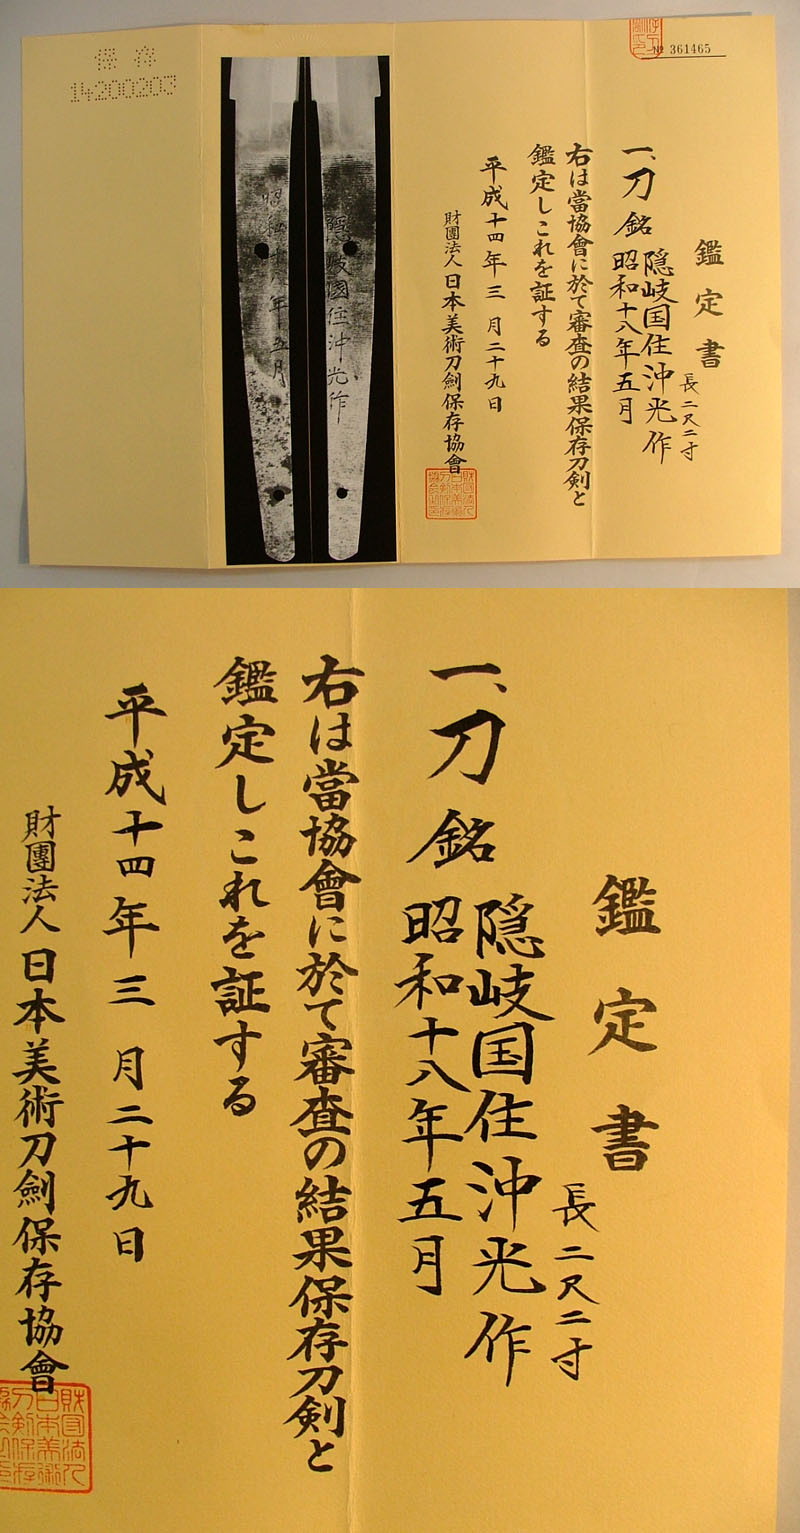 № 361465
鑑定書
長二尺二寸
一、刀 銘 隠岐国住沖光作
昭和十八年五月
右は當協會に於て審査の結果保存刀剣と
鑑定しこれを証する
平成十四年三月二十九日
財團法人 日本美術刀劍保存協會
隠岐國住沖光作
昭和十八年五月
保存
14200203
鑑定書
長二尺二寸
一、刀 銘 隠岐国住沖光作
昭和十八年五月
右は當協會に於て審査の結果保存刀剣と
鑑定しこれを証する
平成十四年三月二十九日
財團法人 日本美術刀劍保存協會